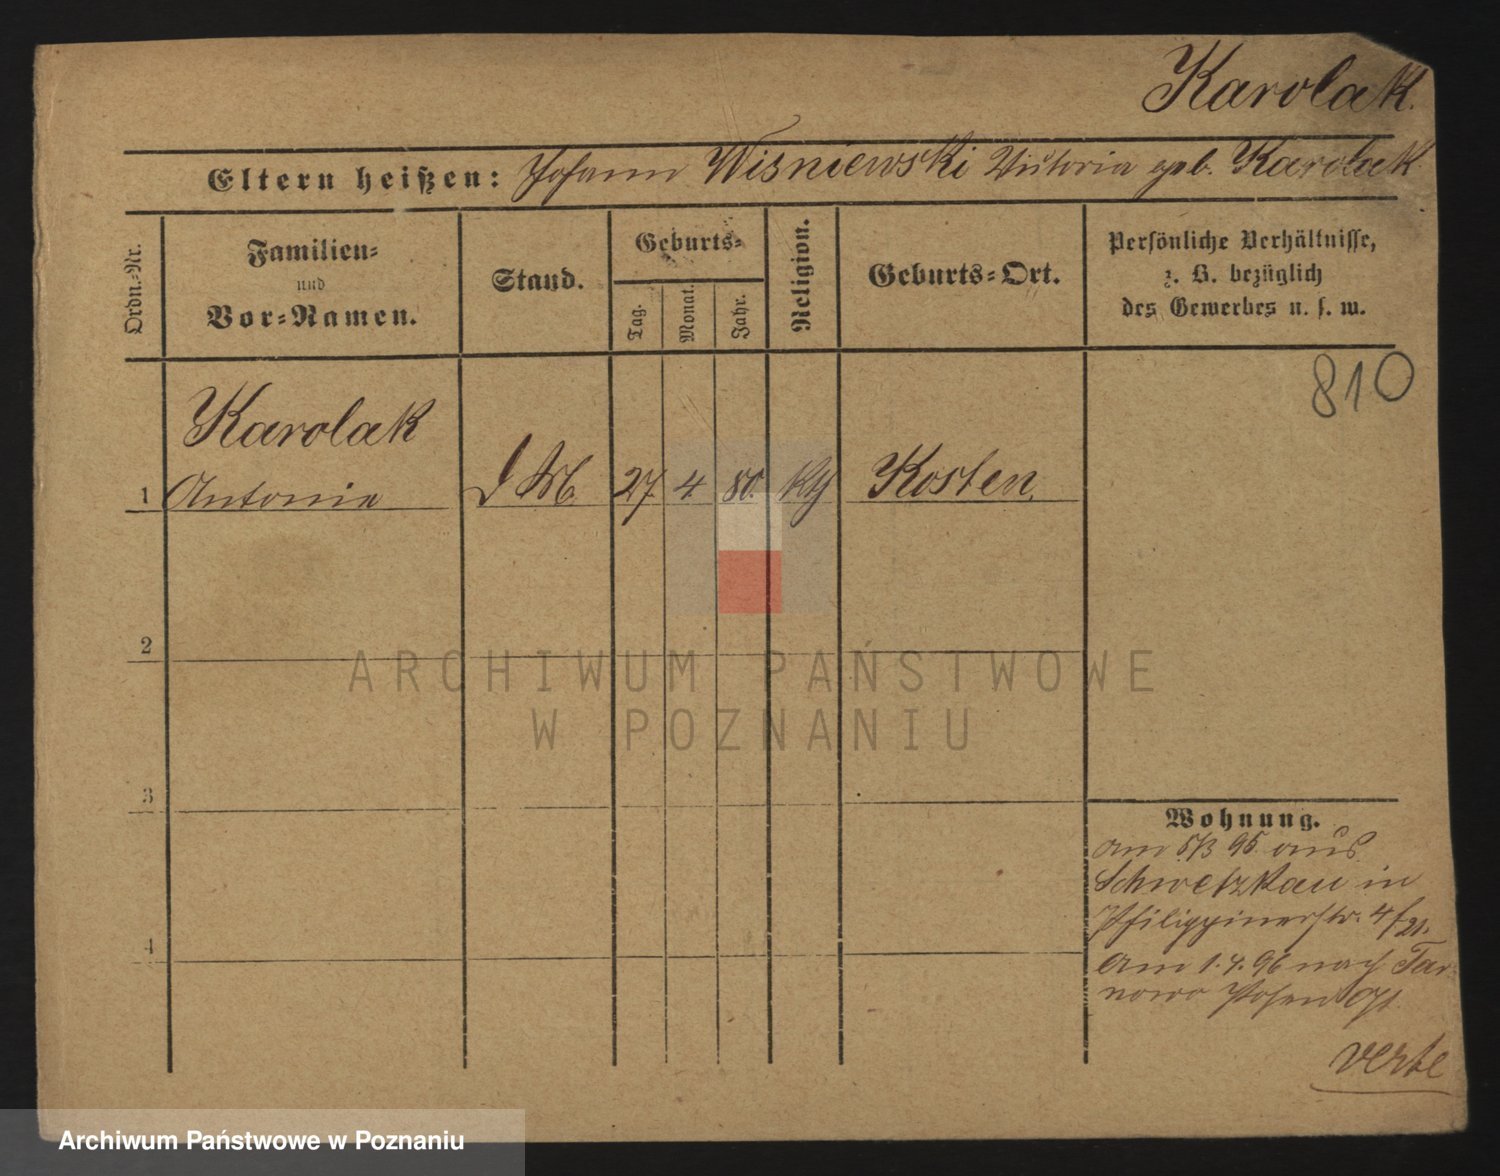 Karolak.
Eltern heißen: Johann Wisniewski Victoria geb. Karolak
Ordn.-Nr.
Familien- und Vor-Namen.
Stand.
Geburts-
Tag.
Monat.
Jahr.
Religion.
Geburts-Ort.
Persönliche Verhältnisse,
z. B. bezüglich
des Gewerbes u. s. w.
810
Karolak
1 Antonie D M. 27. 4. 80. Kth Kosten
2
3
4
Wohnung.
am 5/3 95. aus
Schwetzkau in
Philippinerstr. 4
am 1.4.96 nach Tar-
nowo Posen Ost
verte
ARCHIWUM PAŃSTWOWE
W POZNANIU
Archiwum Państwowe w Poznaniu